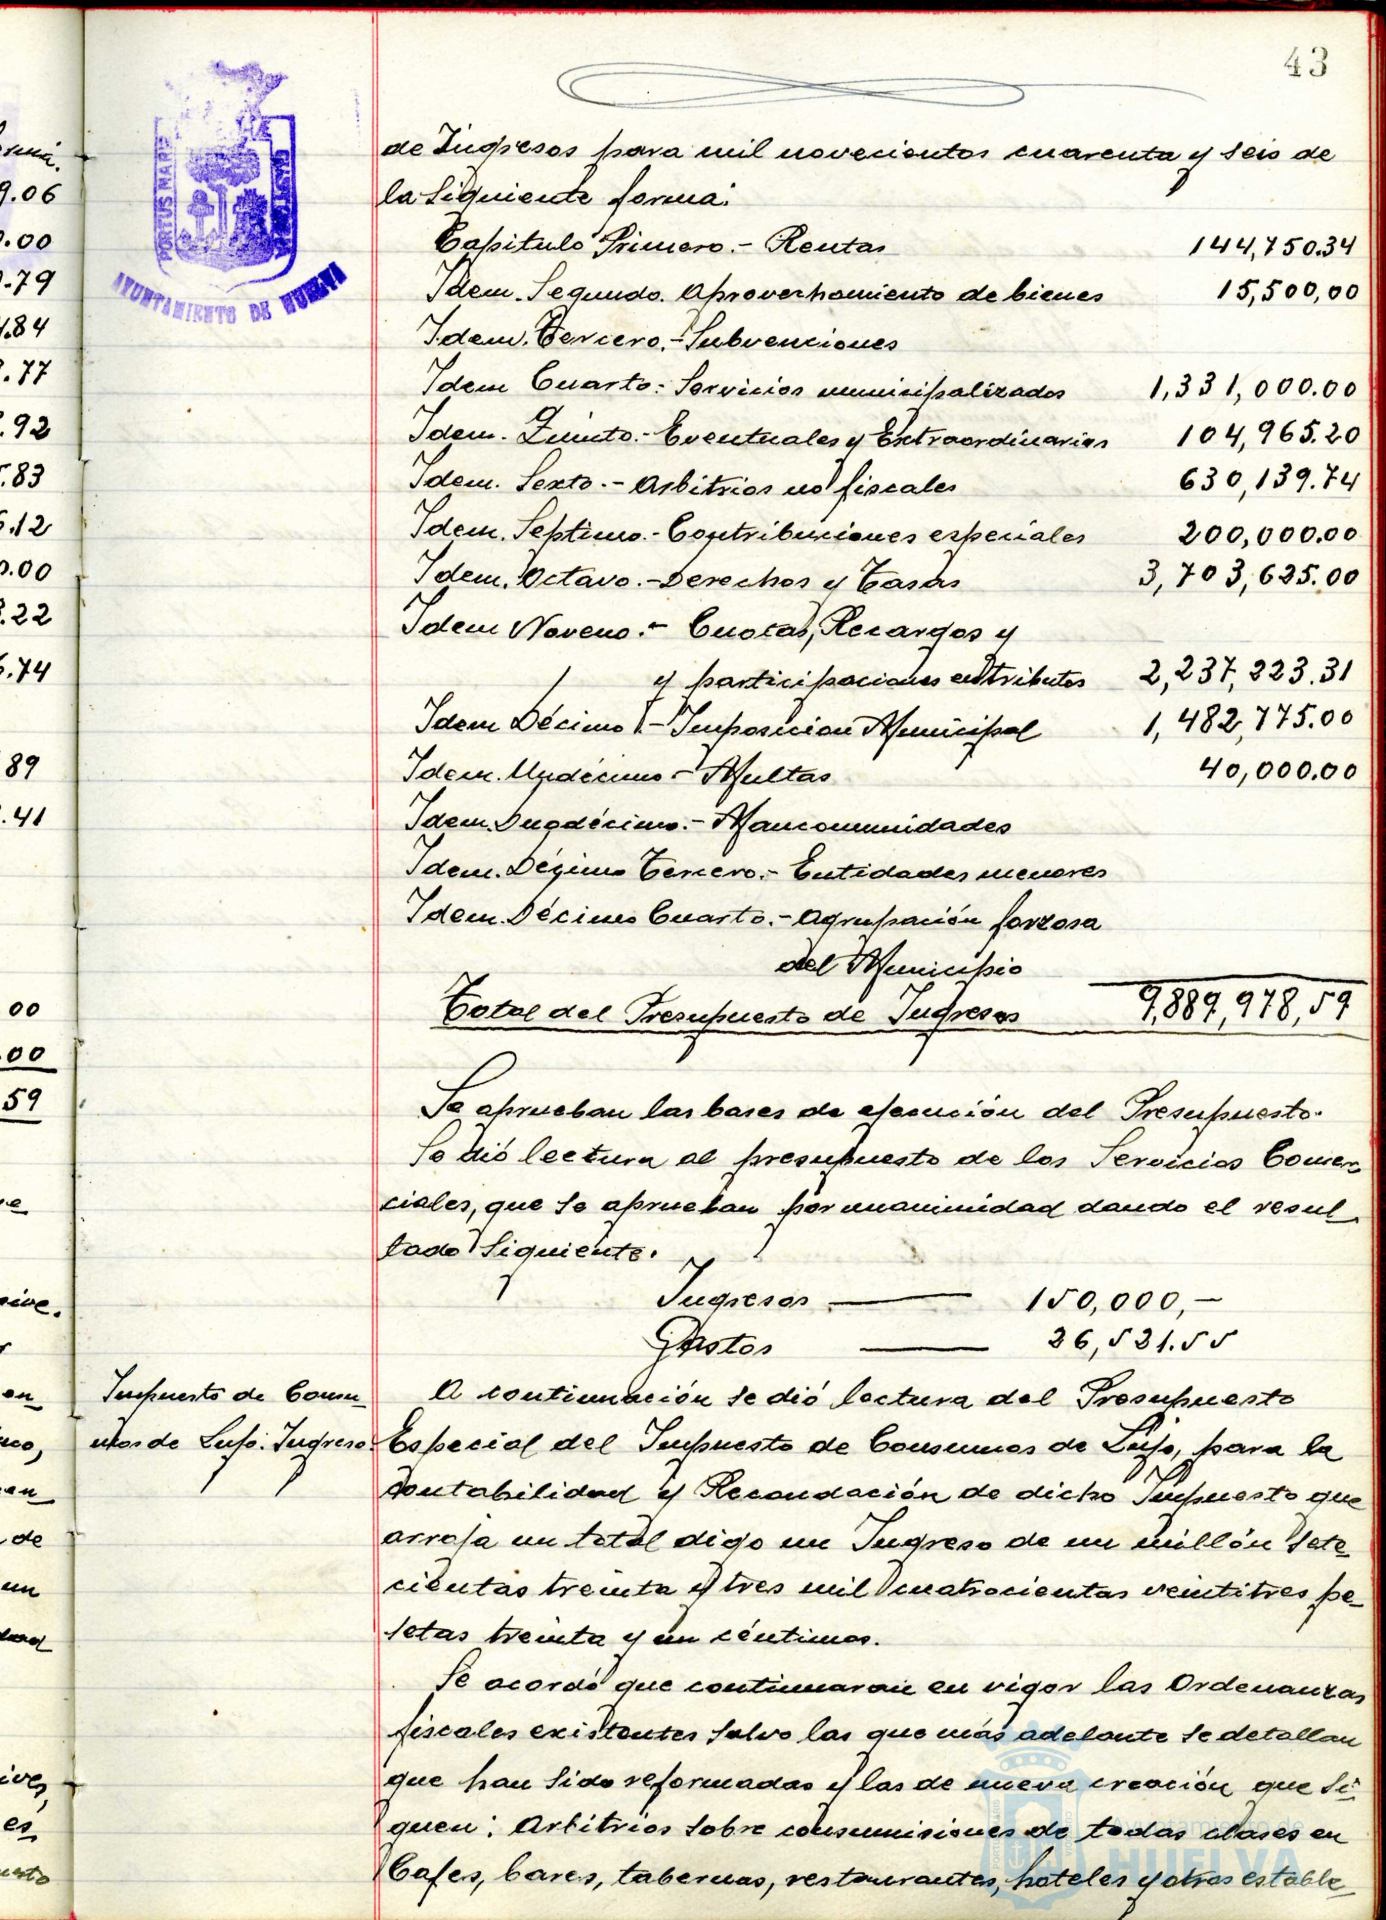 43
PORTUS MARIS
AYUNTAMIENTO DE HUELVA
de Ingresos para mil novecientos cuarenta y seis de
la siguiente forma:
Capitulo Primero.- Rentas 144,750.34
Idem. Segundo. Aprovechamiento de bienes 15,500,00
Idem. Tercero.- Subvenciones
Idem Cuarto.- Servicios municipalizados 1,331,000.00
Idem. Quinto.- Eventuales y Extraordinarios 104,965.20
Idem. Sexto.- Arbitrios no fiscales 630,139.74
Idem. Septimo.- Contribuciones especiales 200,000.00
Idem. Octavo.- Derechos y Tasas 3,703,625.00
Idem Noveno.- Cuotas, Recargos y
y participaciones en tributos 2,237,223.31
Idem Décimo.- Imposicion Municipal 1,482,775.00
Idem. Undécimo.- Multas 40,000.00
Idem. Duodécimo.- Mancomunidades
Idem. Décimo Tercero.- Entidades menores
Idem. Décimo Cuarto.- Agrupación forzosa
del Municipio
Total del Presupuesto de Ingresos 9,889,978,59
Se aprueban las bases de ejecución del Presupuesto.
Se dió lectura al presupuesto de los Servicios Comer-
ciales, que se aprueban por unanimidad dando el resul-
tado siguiente.
Ingresos 150,000,-
Gastos 26,521.55
Impuesto de Consu-
mos de Lujo. Ingreso
A continuación se dió lectura del Presupuesto
Especial del Impuesto de Consumos de Lujo, para la
contabilidad y Recaudación de dicho Impuesto que
arroja un total digo un Ingreso de un millón sete-
cientas treinta y tres mil cuatrocientas veintitres pe-
setas treinta y un céntimos.
Se acordó que continuaran en vigor las Ordenanzas
fiscales existentes salvo las que más adelante se detallan
que han sido reformadas y las de nueva creación que si-
guen: Arbitrios sobre consumisiones de todas clases en
Cafes, bares, tabernas, restaurantes, hoteles y otros estable-
Ayuntamiento de
HUELVA